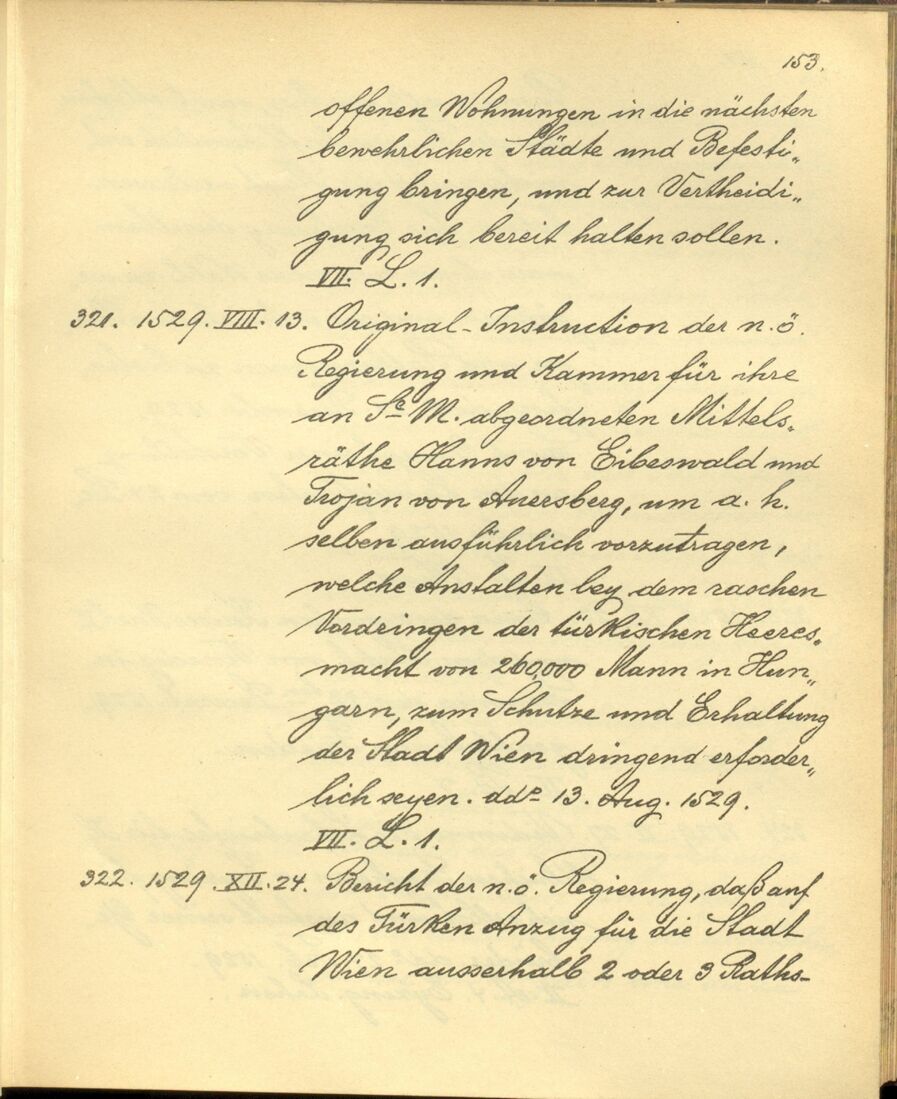 153.
offenen Wohnungen in die nächsten
bewehrlichen Städte und Befesti„
gung bringen, und zur Vertheidi„
gung sich bereit halten sollen.
VII. L. 1.
321. 1529. VIII. 13. Original-Instruction der n.ö.
Regierung und Kammer für ihre
an Se M. abgeordneten Mittels„
räthe Hanns von Eibeswald und
Trojan von Auersberg, um a. h.
selben ausführlich vorzutragen,
welche Anstalten bey dem raschen
Vordringen der türkischen Heeres„
macht von 260,000 Mann in Hun„
garn, zum Schutze und Erhaltung
der Stadt Wien dringend erforder„
lich seyen. ddo 13. Aug. 1529.
VII. L. 1.
322. 1529. XII. 24. Bericht der n.ö. Regierung, daß auf
des Türken Anzug für die Stadt
Wien ausserhalb 2 oder 3 Raths-